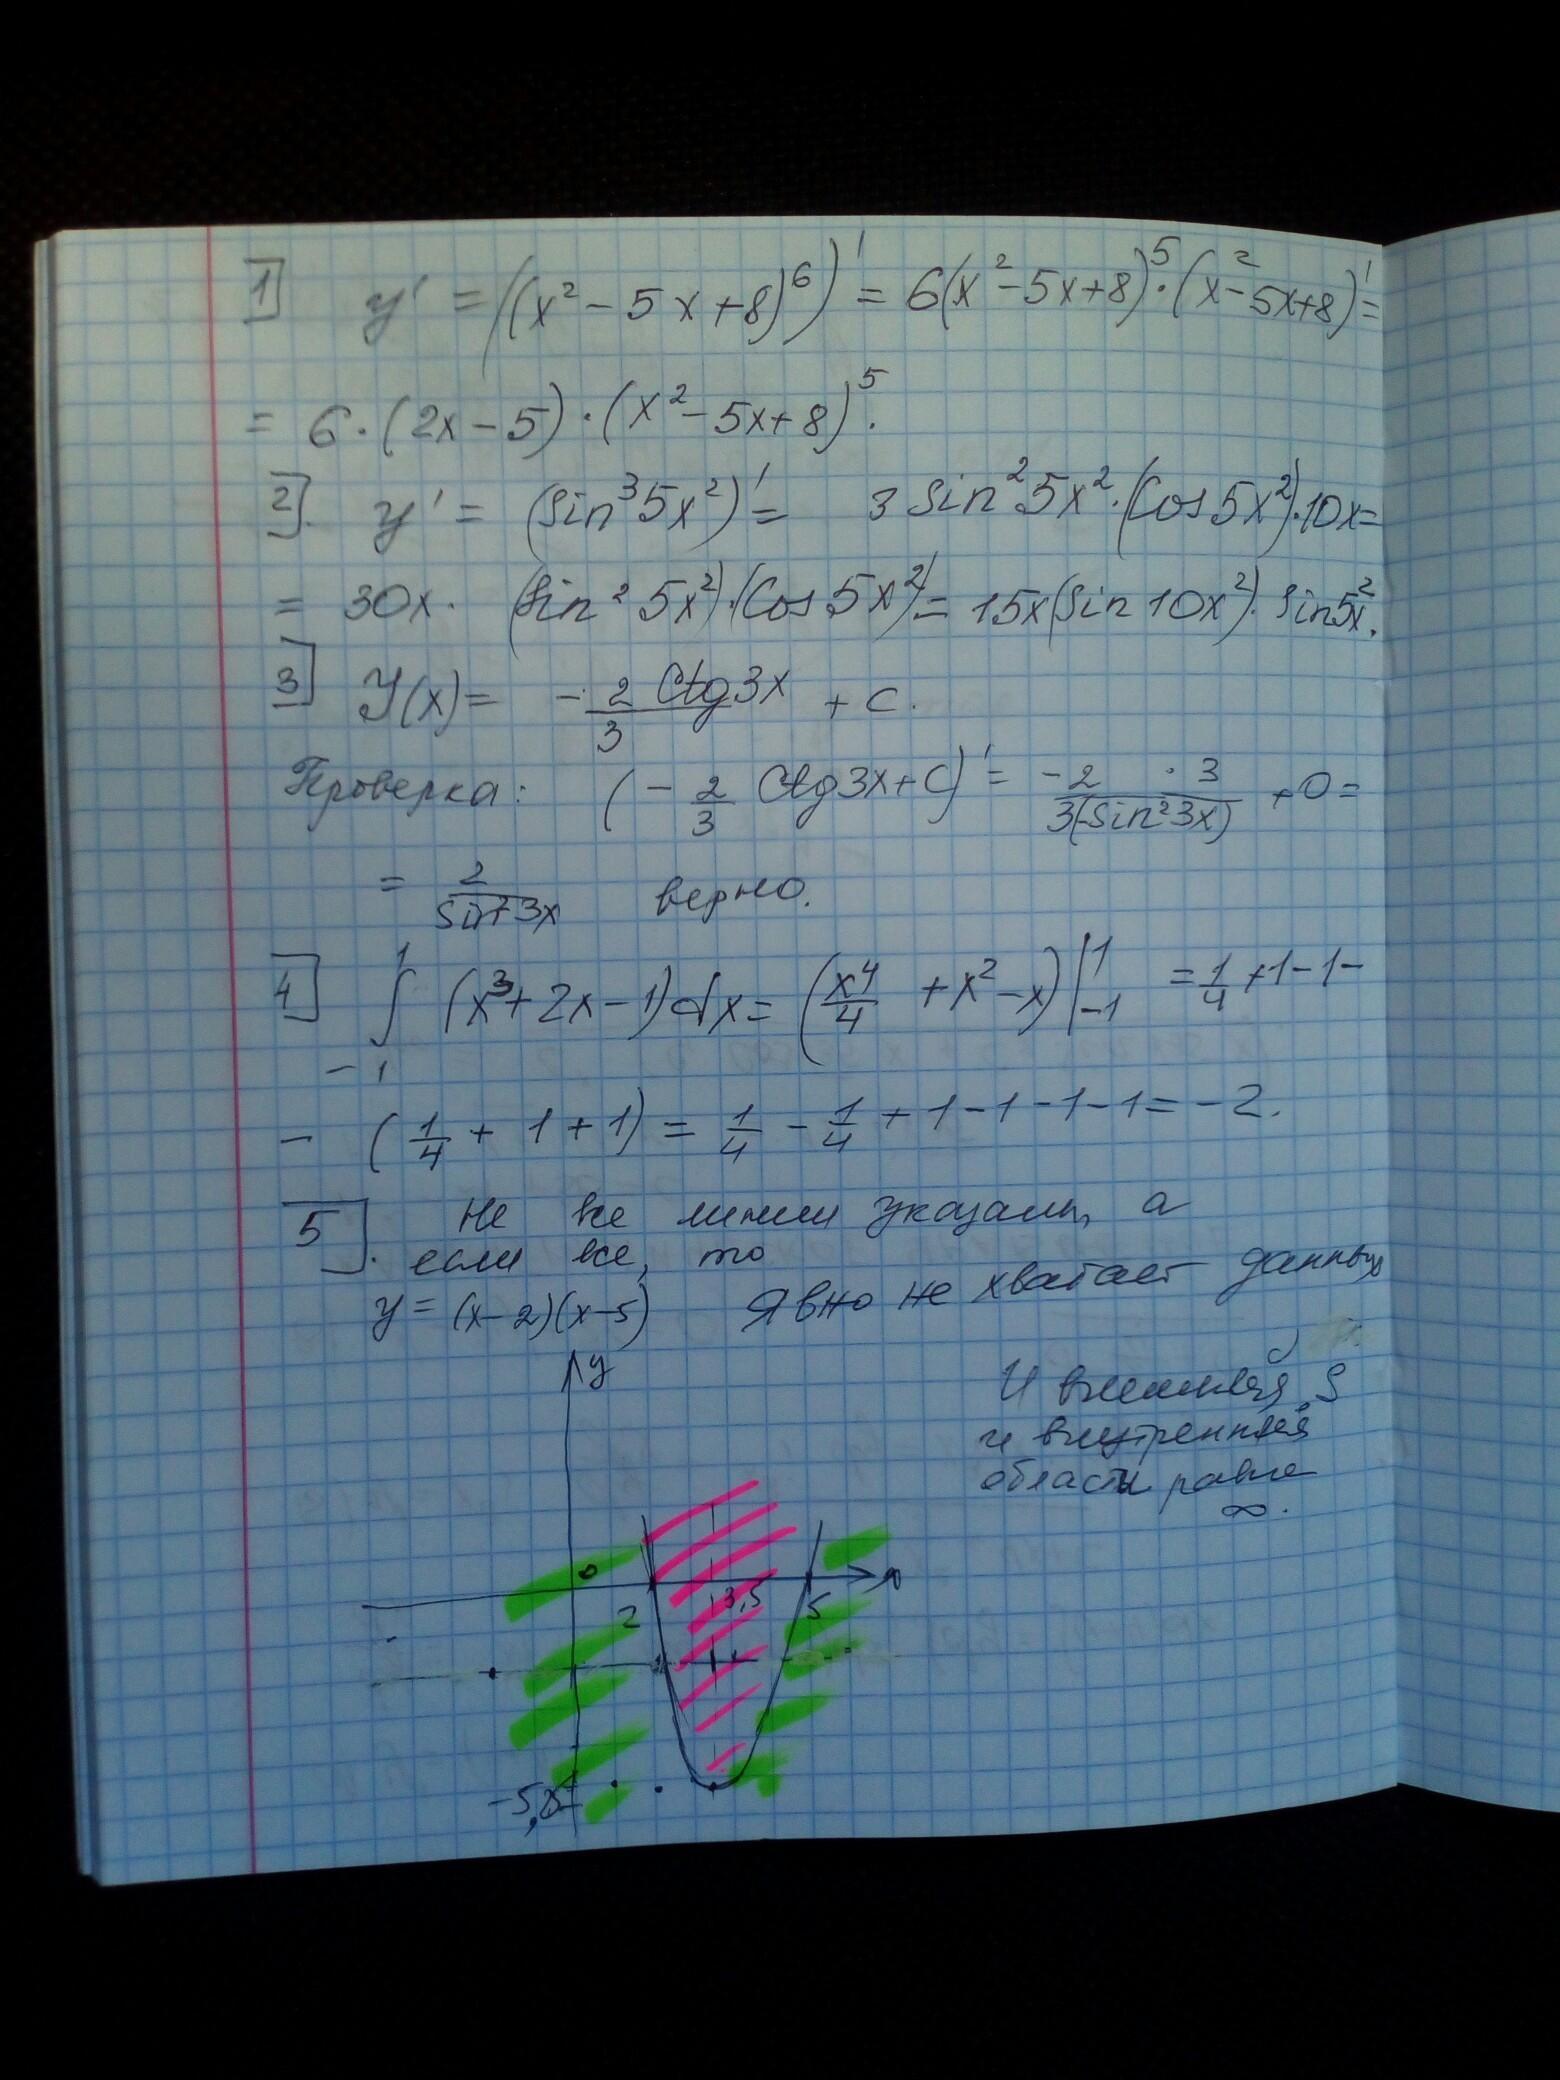 1] y' = ((x² - 5x + 8)⁶)' = 6(x² - 5x + 8)⁵ · (x² - 5x + 8)' =
= 6 · (2x - 5) · (x² - 5x + 8)⁵.
2]. y' = (sin³5x²)' = 3 sin²5x² · (cos 5x²) · 10x =
= 30x · (sin² 5x²) · (cos 5x²) = 15x (sin 10x²) · sin5x².
3] Y(x) = - 2 ctg3x / 3 + c.
Проверка: (- 2/3 ctg3x + c)' = -2 · 3 / 3(-sin²3x) + 0 =
= 2 / sin²3x верно.
4] ∫₋₁¹ (x³ + 2x - 1) dx = (x⁴/4 + x² - x) |₋₁¹ = 1/4 + 1 - 1 -
- (1/4 + 1 + 1) = 1/4 - 1/4 + 1 - 1 - 1 - 1 = -2.
5]. Не все линии указаны, а
если все, то
y = (x - 2)(x - 5) Явно не хватает данных
И внешняя S
и внутренняя
области равне
∞.
y
0
2 3,5 5
-5,25